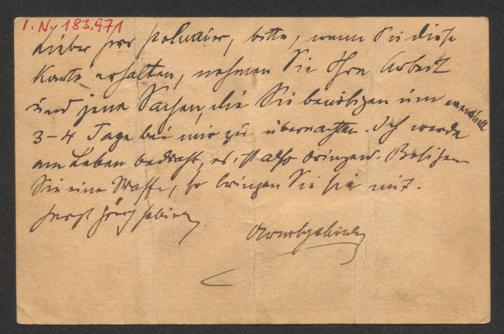 I.N. 183.971
Lieber Herr Polnauer, bitte, wenn Sie diese
Karte erhalten, nehmen Sie Ihre Arbeit
und jene Sachen, die Sie benötigen um eventuell
3-4 Tage bei mir zu übernachten. Ich werde
am Leben bedroht, es ist also dringend. Besitzen
Sie eine Waffe, so bringen Sie sie mit.